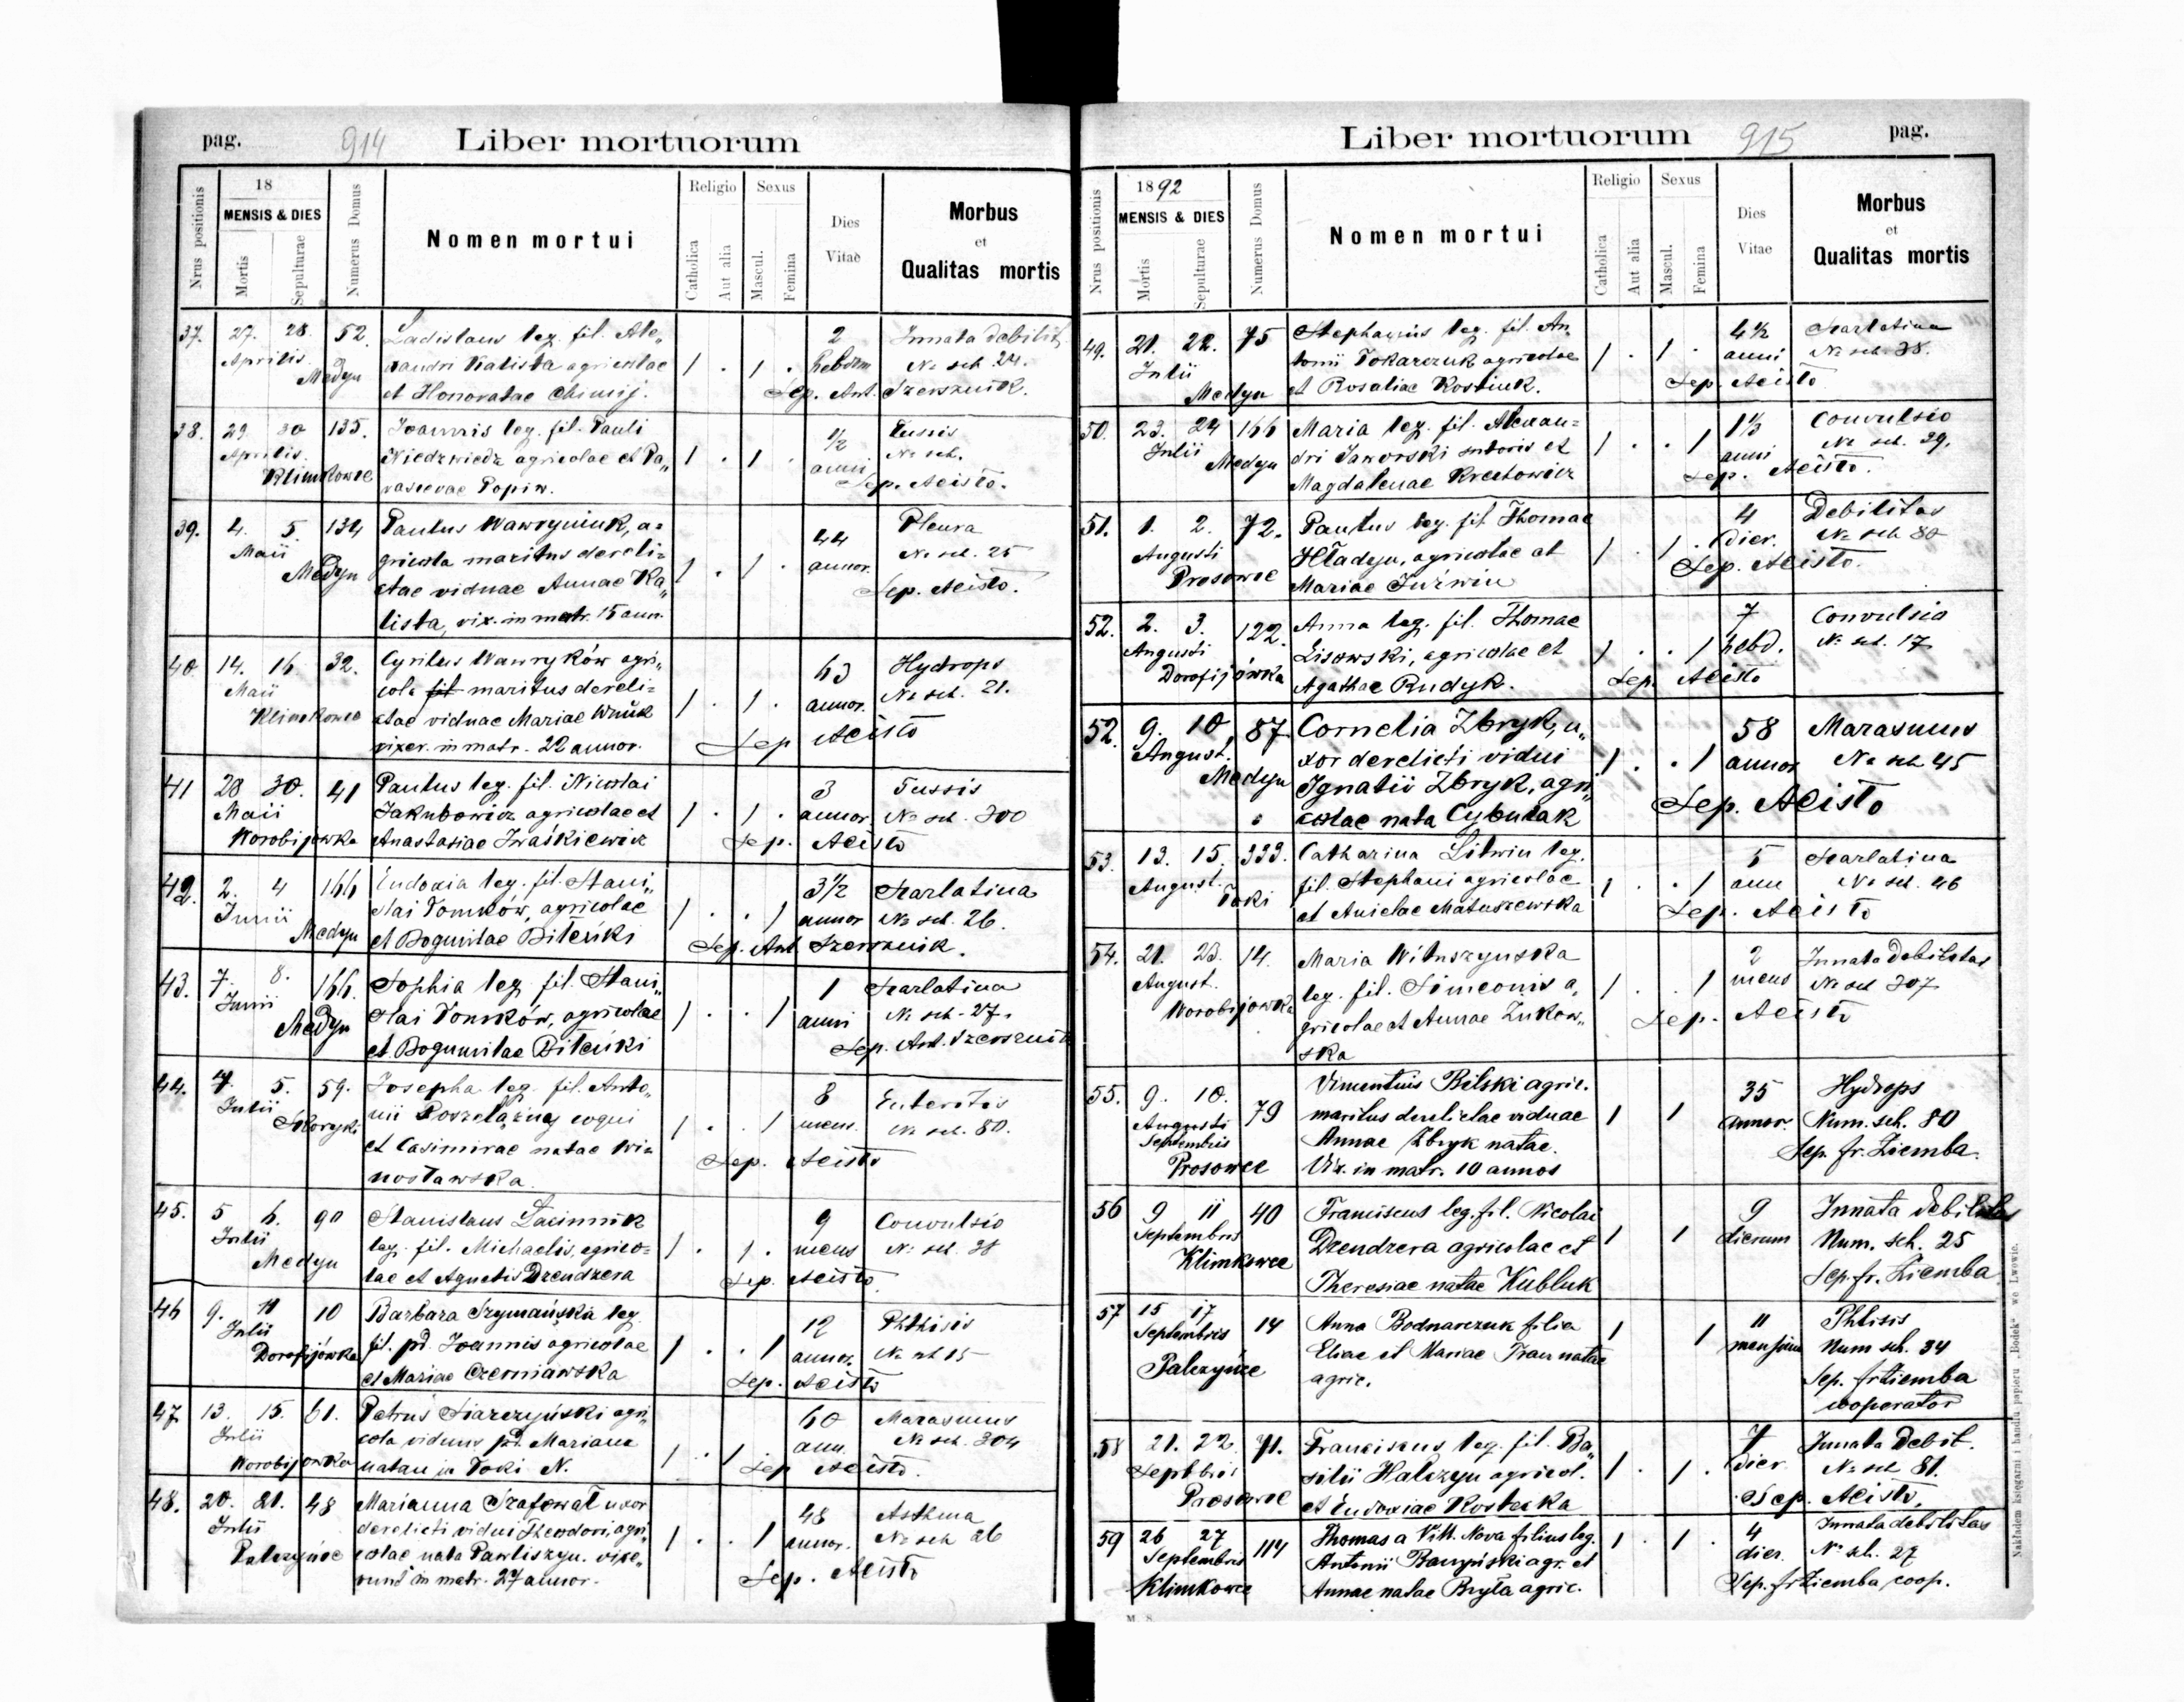 pag. 914 Liber mortuorum
Nrus positionis 18 MENSIS & DIES Mortis Sepulturae Numerus Domus Nomen mortui Religio Catholica Aut alia Sexus Mascul. Femina Dies Vitae Morbus et Qualitas mortis
37. 27. 28. 52. Ladislaus leg. fil. Ale„ 2 Innata debilit.
Aprilis xandri Kalista agricolae 1 . 1 . hebdom № sch. 24.
Medyn et Honoratae Chimij. Sep. Ant. Szersznik.
38. 29. 30 135. Joannis leg. fil. Pauli 1/2 Tussis
Aprilis. Niedzwiedz agricolae et Pa„ 1 . 1 . anni № sch.
Klimkowce rascevae Popiw. Sep. Aeisto.
39. 4. 5. 134 Paulus Wawryniuk, a= 44 Pleura
Maii gricola maritus dereli= 1 . 1 . annor. № sch. 25
Medyn ctae viduae Annae Ka„ Sep. Aeisto.
lista, vix. in matr. 15 ann.
40 14. 16. 32. Cyrilus Wawryków agri„ 63 Hydrops
Maii cola fil maritus dereli= 1 . 1 . annor. № sch. 21.
Klimkowce ctae viduae Mariae Wnuk Sep Aeisto
vixer. in matr. 22 annor.
41 28 30. 41 Paulus leg. fil. Nicolai 3 Tussis
Maii Jakubowicz agricolae et 1 . 1 . annor. № sch. 300
Worobijowka Anastasiae Iwaśkiewicz Sep. Aeisto
42. 2. 4 166 Eudoxia leg. fil. Stani„ 3 1/2 Scarlatina
Junii slai Tomków, agricolae 1 . . 1 annor № sch. 26.
Medyn et Bogumilae Biteńki Sep. Ant. Szersznik.
43. 7. 8. 166. Sophia leg. fil. Stani„ 1 Scarlatina
Junii slai Tomków, agricolae 1 . . 1 anni № sch. 27.
Medyn et Bogumilae Biteńki Sep. Ant. Szersznik
44. 4. 5. 59. Josepha leg. fil. Anto„ 8 Enteritis
Julii nii coqui 1 . . 1 mens. № sch. 80.
Skoryki et Casimirae natae Wi= Sep. Aeisto
nosławska.
45. 5 6. 90 Stanislaus 9 Convulsio
Julii leg. fil. Michaelis, agrico= 1 . 1 . mens № sch. 28
Medyn lae et Agnetis Dzendzera Sep. Aeisto
46 9. 11 10 Barbara Szymańska leg. 12 Phthisis
Julii fil. pd. Joannis agricolae 1 . . 1 annor. № sch 15
Dorofijówka et Mariae Czerniawska Sep. Aeisto
47 13. 15. 61. Petrus Siarczyński agri„ 60 Marasmus
Julii cola viduus pd. Mariana 1 . 1 . ann. № sch. 304
Worobijowka natau in Toki N. Sep Aeisto.
48. 20. 21. 48 Marianna Szafował uxor 48 Asthma
Julii derelicti vidui Theodori, agri„ 1 . . 1 annor. № sch 26
Palczyńce colae nata Pawliszyn. vixe„ Sep. Aeisto
runt in matr. 27 annor.
Liber mortuorum 915 pag.
Nrus positionis 1892 MENSIS & DIES Mortis Sepulturae Numerus Domus Nomen mortui Religio Catholica Aut alia Sexus Mascul. Femina Dies Vitae Morbus et Qualitas mortis
49. 21. 22. 75 Stephanus leg. fil. An„ 4 1/2 Scarlatina
Julii tonii Tokarczuk agricolae 1 . 1 . anni № sch. 38.
Medyn et Rosaliae Kostiuk. Sep. Aeisto
50. 23. 24 166 Maria leg. fil. Alexan= 1 1/2 Convulsio
Julii dri Jaworski sutoris et 1 . . 1 anni № sch. 39.
Medyn Magdalenae Krectowicz Sep. Aeisto.
51. 1. 2. 72. Paulus leg. fil Thomae 4 Debilitas
Augusti Hładyn, agricolae et 1 . 1 . dier. № sch 80
Prosowce Mariae Juźwin Sep. Aeisto.
52. 2. 3. 122. Anna leg. fil. Thomae 7 Convulsio
Augusti Lisowski, agricolae et 1 . . 1 hebd. № sch. 17
Dorofijówka Agathae Rudyk. Sep. Aeisto
52. 9. 10. 87 Cornelia Zbryk, u„ 58 Marasmus
August. xor derelicti vidui 1 . . 1 annor № sch 45
Medyn Ignatii Zbryk, agri„ Sep. Aeisto
colae nata Cybulak
53. 13. 15. 333. Catharina Litwin leg. 5 Scarlatina
August. fil. Stephani agricolae 1 . . 1 ann № sch. 46
Toki et Anielae Matuszewska Sep. Aeisto
54. 21. 23. 14. Maria Wituszynska 2 Innata debilitas
August. leg. fil. Simeonis a„ 1 . . 1 mens № sch 307
Worobijowka gricolae et Annae Zukow„ Sep. Aeisto
ska
55. 9. 10. 79 Vincentius Bilski agric. 35 Hydrops
Augusti maritus derelictae viduae 1 1 annor. Num. sch. 80
Septembris Annae Zbryk natae. Sep. fr. Ziemba.
Prosowce Vix. in matr. 10 annos
56 9 11 40 Franciscus leg. fil. Nicolai 9 Innata debilitas
Septembris Dzendzera agricolae et 1 1 dierum Num. sch. 25
Klimkowce Theresiae natae Kubluk Sep. fr. Ziemba
57 15 17 14 Anna Bodnarczuk filia 11 Phtisis
Septembris Eliae et Mariae Tracz natae 1 1 mensium Num sch. 34
Palczyńce agric. Sep. fr Ziemba
cooperator
58 21. 22. 71. Franciscus leg. fil. Ba„ 7 Innata Debil.
Septbris silii Halczyn agricol. 1 . 1 . dier № sch 81.
Prosowce et Eudoxiae Kostecka Sep. Aeisto.
59 26 27 114 Thomas a Vill. Nova filius leg. 1 . 1 . 4 Innata debilitas
Septembris Antonii agr. et dier. № sch. 27
Klimkowce Annae natae Bryła agric. Sep. fr Ziemba coop.
M. S.
Nakładem księgarni i handlu papieru „Bodek“ we Lwowie.